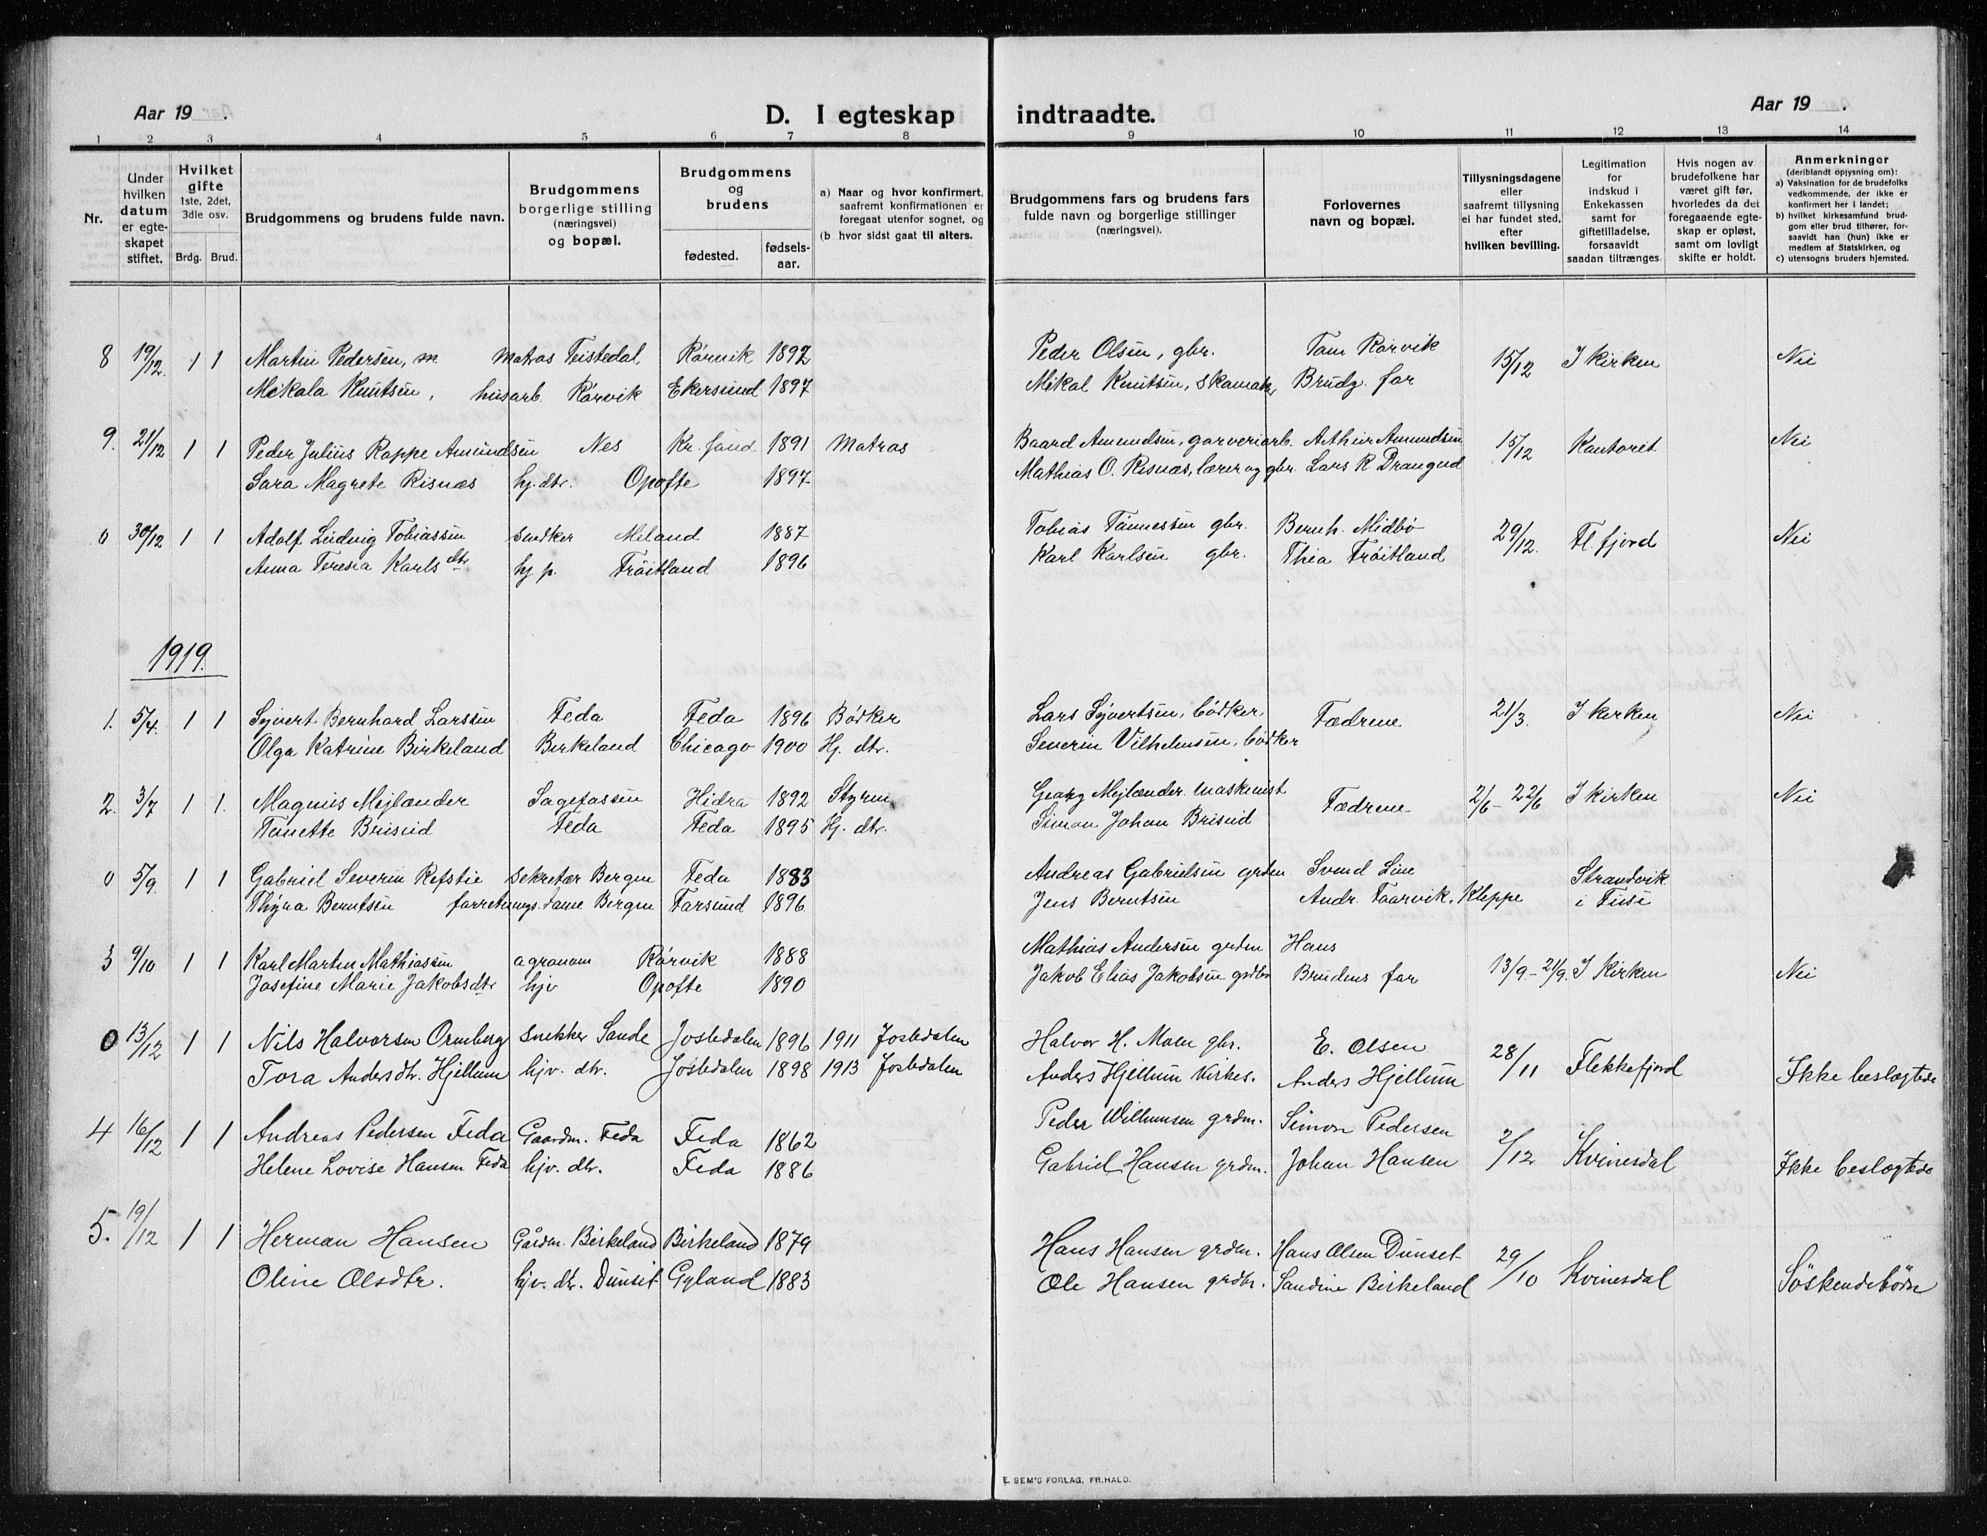 Aar 19 .
D. I egteskap indtraadte.
Aar 19 .
1 2 3 4 5 6 7 8 9 10 11 12 13 14
Nr.
Under hvilken datum er egteskapet stiftet.
Hvilket gifte 1ste, 2det, 3dle osv.
Brdg. Brud.
Brudgommens og brudens fulde navn.
Brudgommens borgerlige stilling (næringsvei) og bopæl.
Brudgommens og brudens
fødested. fødselsaar.
a) Naar og hvor konfirmert, saafremt konfirmationen er foregaat utenfor sognet, og
(b hvor sidst gaat til alters.
Brudgommens fars og brudens fars fulde navn og borgerlige stillinger (næringsvei).
Forlovernes navn og bopæl.
Tillysningsdagene eller saafremt tillysning ei har fundet sted, efter hvilken bevilling.
Legitimation for indskud i Enkekassen samt for giftetilladelse, forsaavidt saadan tiltrænges.
Hvis nogen av brudefolkene har været gift før, hvorledes da det foregaaende egteskap er opløst, samt om lovligt skifte er holdt.
Anmerkninger (deriblandt opysning om):
a) Vaksination for de brudefolks vedkommende, der ikke er konfirmert her i landet;
b) hvilket kirkesamfund brudgom eller brud tilhører, forsaavidt han (hun) ikke er medlem af Statskirken, og
c) utensogns bruders hjemsted.
8 19/12. 1 1 Martin Pedersen, m matros Teistedal, Rørvik 1892 Peder Olsen, gbr. Tom Rørvik 15/12 I kirken Nei
Mikala Knutsen, husarb. Rørvik Ekersund 1897 Mikal Knutsen, skomak Brudg. far
9. 21/12 1 1 Peder Julius Rappe Amundsen Nes Kr. sand 1891 Matros Baard Amundsen, garveriarb. Arthur Amundsen 15/12 Kontoret Nei
Sara Magrete Risnæs hj. dtr. Opofte 1897 Mathias O. Risnæs, lærer og gbr. Lars R Drangeid
0 30/12 1 1 Adolf Ludvig Tobiassen snedker Meland 1887 Tobias Tønnessen gbr. Bernh. Midbø 29/12. Fl. fjord Nei
Anna Teresia Karlsdtr hj. p. Frøitland 1896 Karl Karlsen gbr. Thea Frøitland
1919.
1. 5/4. 1 1 Syvert Bernhard Larssen Feda Feda 1896 Bødker Lars Syvertsen, bødker, Fædrene 21/3. I kirken Nei
Olga Katrine Birkeland Birkeland Chicago 1900 Hj. dtr. Severin Vilhelmsen, bødker
2. 3/7 1 1. Magnus Mejlænder Sagefossen Hidra 1892 Styrm Georg Mejlænder maskinist Fædrene 2/6 - 22/6 I kirken Nei
Tanette Briseid Feda Feda 1895 Hj. dtr. Simon Johan Briseid
0 5/9. 1 1 Gabriel Severin Refstie sekretær Bergen Feda 1883 Andreas Gabrielsen grdm Svend Line Strandvik
Thyra Berntsen forretnings. dame Bergen Farsund 1896 Jens Berntsen Andr. Taarvik, Kleppe i Fuse
3 9/10 1 1 Karl Martin Mathiassen agronom Rørvik 1888 Mathias Andersen grdm Hans
Josefine Marie Jakobsdtr hjv Opofte 1890 Jakob Elias Jakobsen grdbr Brudens far 13/9 - 21/9. I kirken Nei
0 13/12 1 1 Nils Halvorsen Ormberg snekker Sande Jostedalen 1896 1911 Jostedalen Halvor H. Moen gbr. E. Olsen 28/11 Flekkefjord
Tora Andersdtr. Hjellum hjv. dtr. Jostedalen 1898 1913 Jostedalen Anders Hjellum Kirkes. Anders Hjellum Ikke beslægtede
4 16/12 1 1 Andreas Pedersen Feda Gaardm. Feda Feda 1862 Peder Willumsen grdm. Simon Pedersen 2/12 Kvinesdal
Helene Lovise Hansen Feda hjv. dtr. Feda 1886 Gabriel Hansen grdm. Johan Hansen Ikke beslægtede
5. 19/12 1 1 Herman Hansen Gårdm. Birkeland Birkeland 1879 Hans Hansen grdm. Hans Olsen Dunset 29/10 Kvinesdal
Oline Olsdtr. hjv. dtr. Dunset Gyland 1883 Ole Hansen grdbr. Sandine Birkeland Søskendebørn
E. SEM'S FORLAG, FR.HALD.